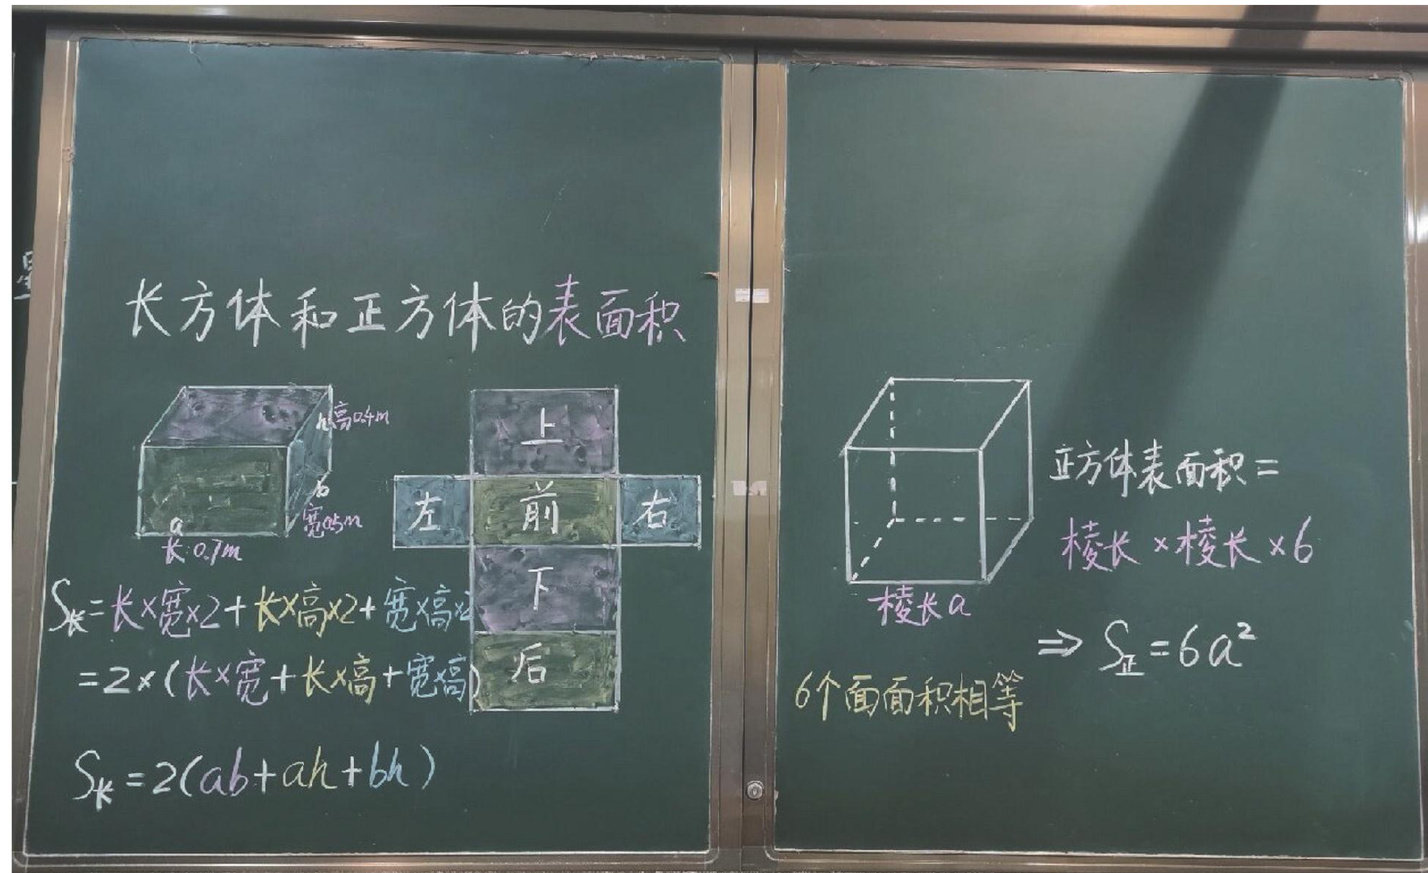 长方体和正方体的表面积
h 高0.4m
b
宽0.5m
a
长:0.7m
上
左 前 右
下
后
S长=长×宽×2+长×高×2+宽×高×2
=2×(长×宽+长×高+宽×高)
S长=2(ab+ah+bh)
正方体表面积=
棱长×棱长×6
棱长a
⇒ S正=6a²
6个面面积相等